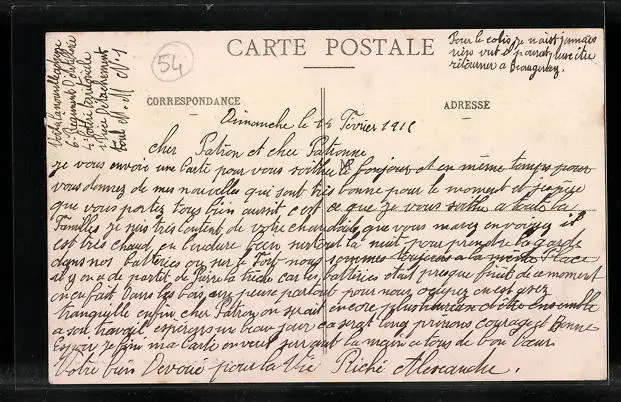 54
CARTE POSTALE
CORRESPONDANCE
ADRESSE
Pour le colis je n'aist jamais
rien vut il pourat peut être
retourner a Beaugency.
6e Regiment d'artillerie
4e Batrie teritoriale
Dimanche le 14 Février 191
cher Patron et cher Patronne
je vous envoir une Carte pour vous soithre le bonjour et en même temps pour
vous donnez de mes nouvelle qui sont très bonne pour le moment et j'espère
que vous portez tous bien aussit c'est ce que je vous soithe a toute la
Familles je suis très content de votre chandail que vous mavez envoyez il
est très chaud, en endure bien surtout la nuit pour prendre la garde
dans nos batteries ou sur le Fort nous sommes toujours a la même Place
il y en a de partit de Pierre la trèche car les batteries était presque finit de ce moment
on en fait dans les bois, un peu partout pour nous occupez on est assez
tranquille enfin cher Patron on serait encore plus heureux d'être ensemble
a son travail espérons un beau jour ca serat long prenons courage et Bonne
Espoir je fini ma Carte en vous serrant la main a tous de bon Coeur
Votre bien Devoué pour la Vie Riché Alexandre.